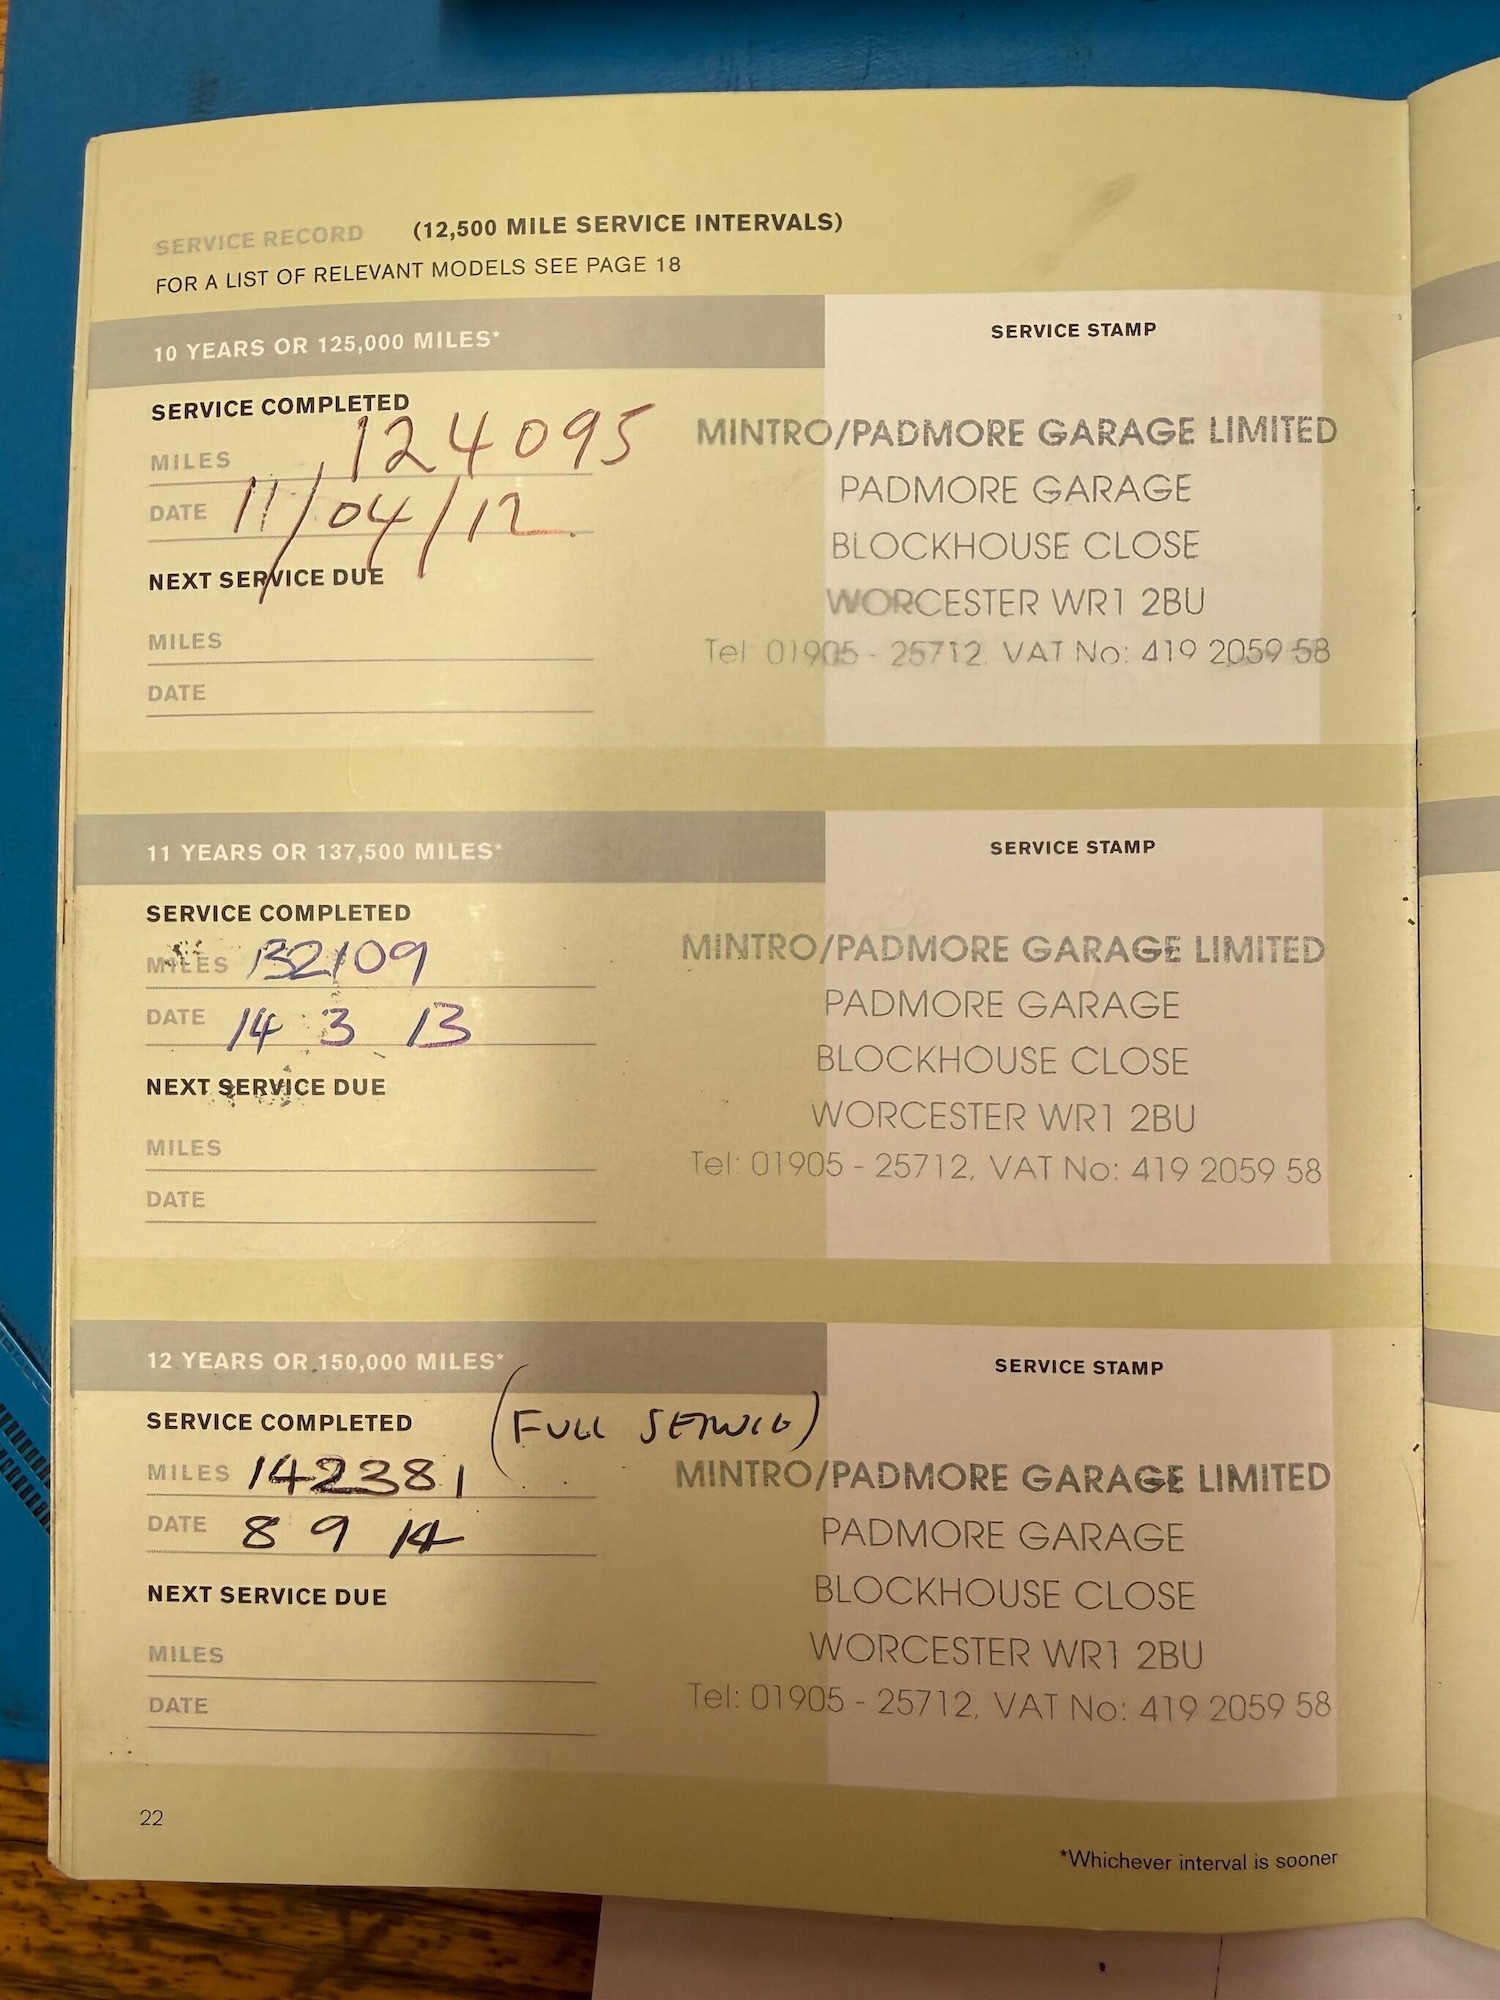 SERVICE RECORD (12,500 MILE SERVICE INTERVALS)
FOR A LIST OF RELEVANT MODELS SEE PAGE 18
10 YEARS OR 125,000 MILES*
SERVICE STAMP
SERVICE COMPLETED
MILES 124095
DATE 11/04/12
NEXT SERVICE DUE
MILES
DATE
MINTRO/PADMORE GARAGE LIMITED
PADMORE GARAGE
BLOCKHOUSE CLOSE
WORCESTER WR1 2BU
Tel: 01905 - 25712, VAT No: 419 2059 58
11 YEARS OR 137,500 MILES*
SERVICE STAMP
SERVICE COMPLETED
MILES 132109
DATE 14 3 13
NEXT SERVICE DUE
MILES
DATE
MINTRO/PADMORE GARAGE LIMITED
PADMORE GARAGE
BLOCKHOUSE CLOSE
WORCESTER WR1 2BU
Tel: 01905 - 25712, VAT No: 419 2059 58
12 YEARS OR 150,000 MILES*
SERVICE STAMP
SERVICE COMPLETED (FULL SERVICE)
MILES 142381
DATE 8 9 14
NEXT SERVICE DUE
MILES
DATE
MINTRO/PADMORE GARAGE LIMITED
PADMORE GARAGE
BLOCKHOUSE CLOSE
WORCESTER WR1 2BU
Tel: 01905 - 25712, VAT No: 419 2059 58
22
*Whichever interval is sooner